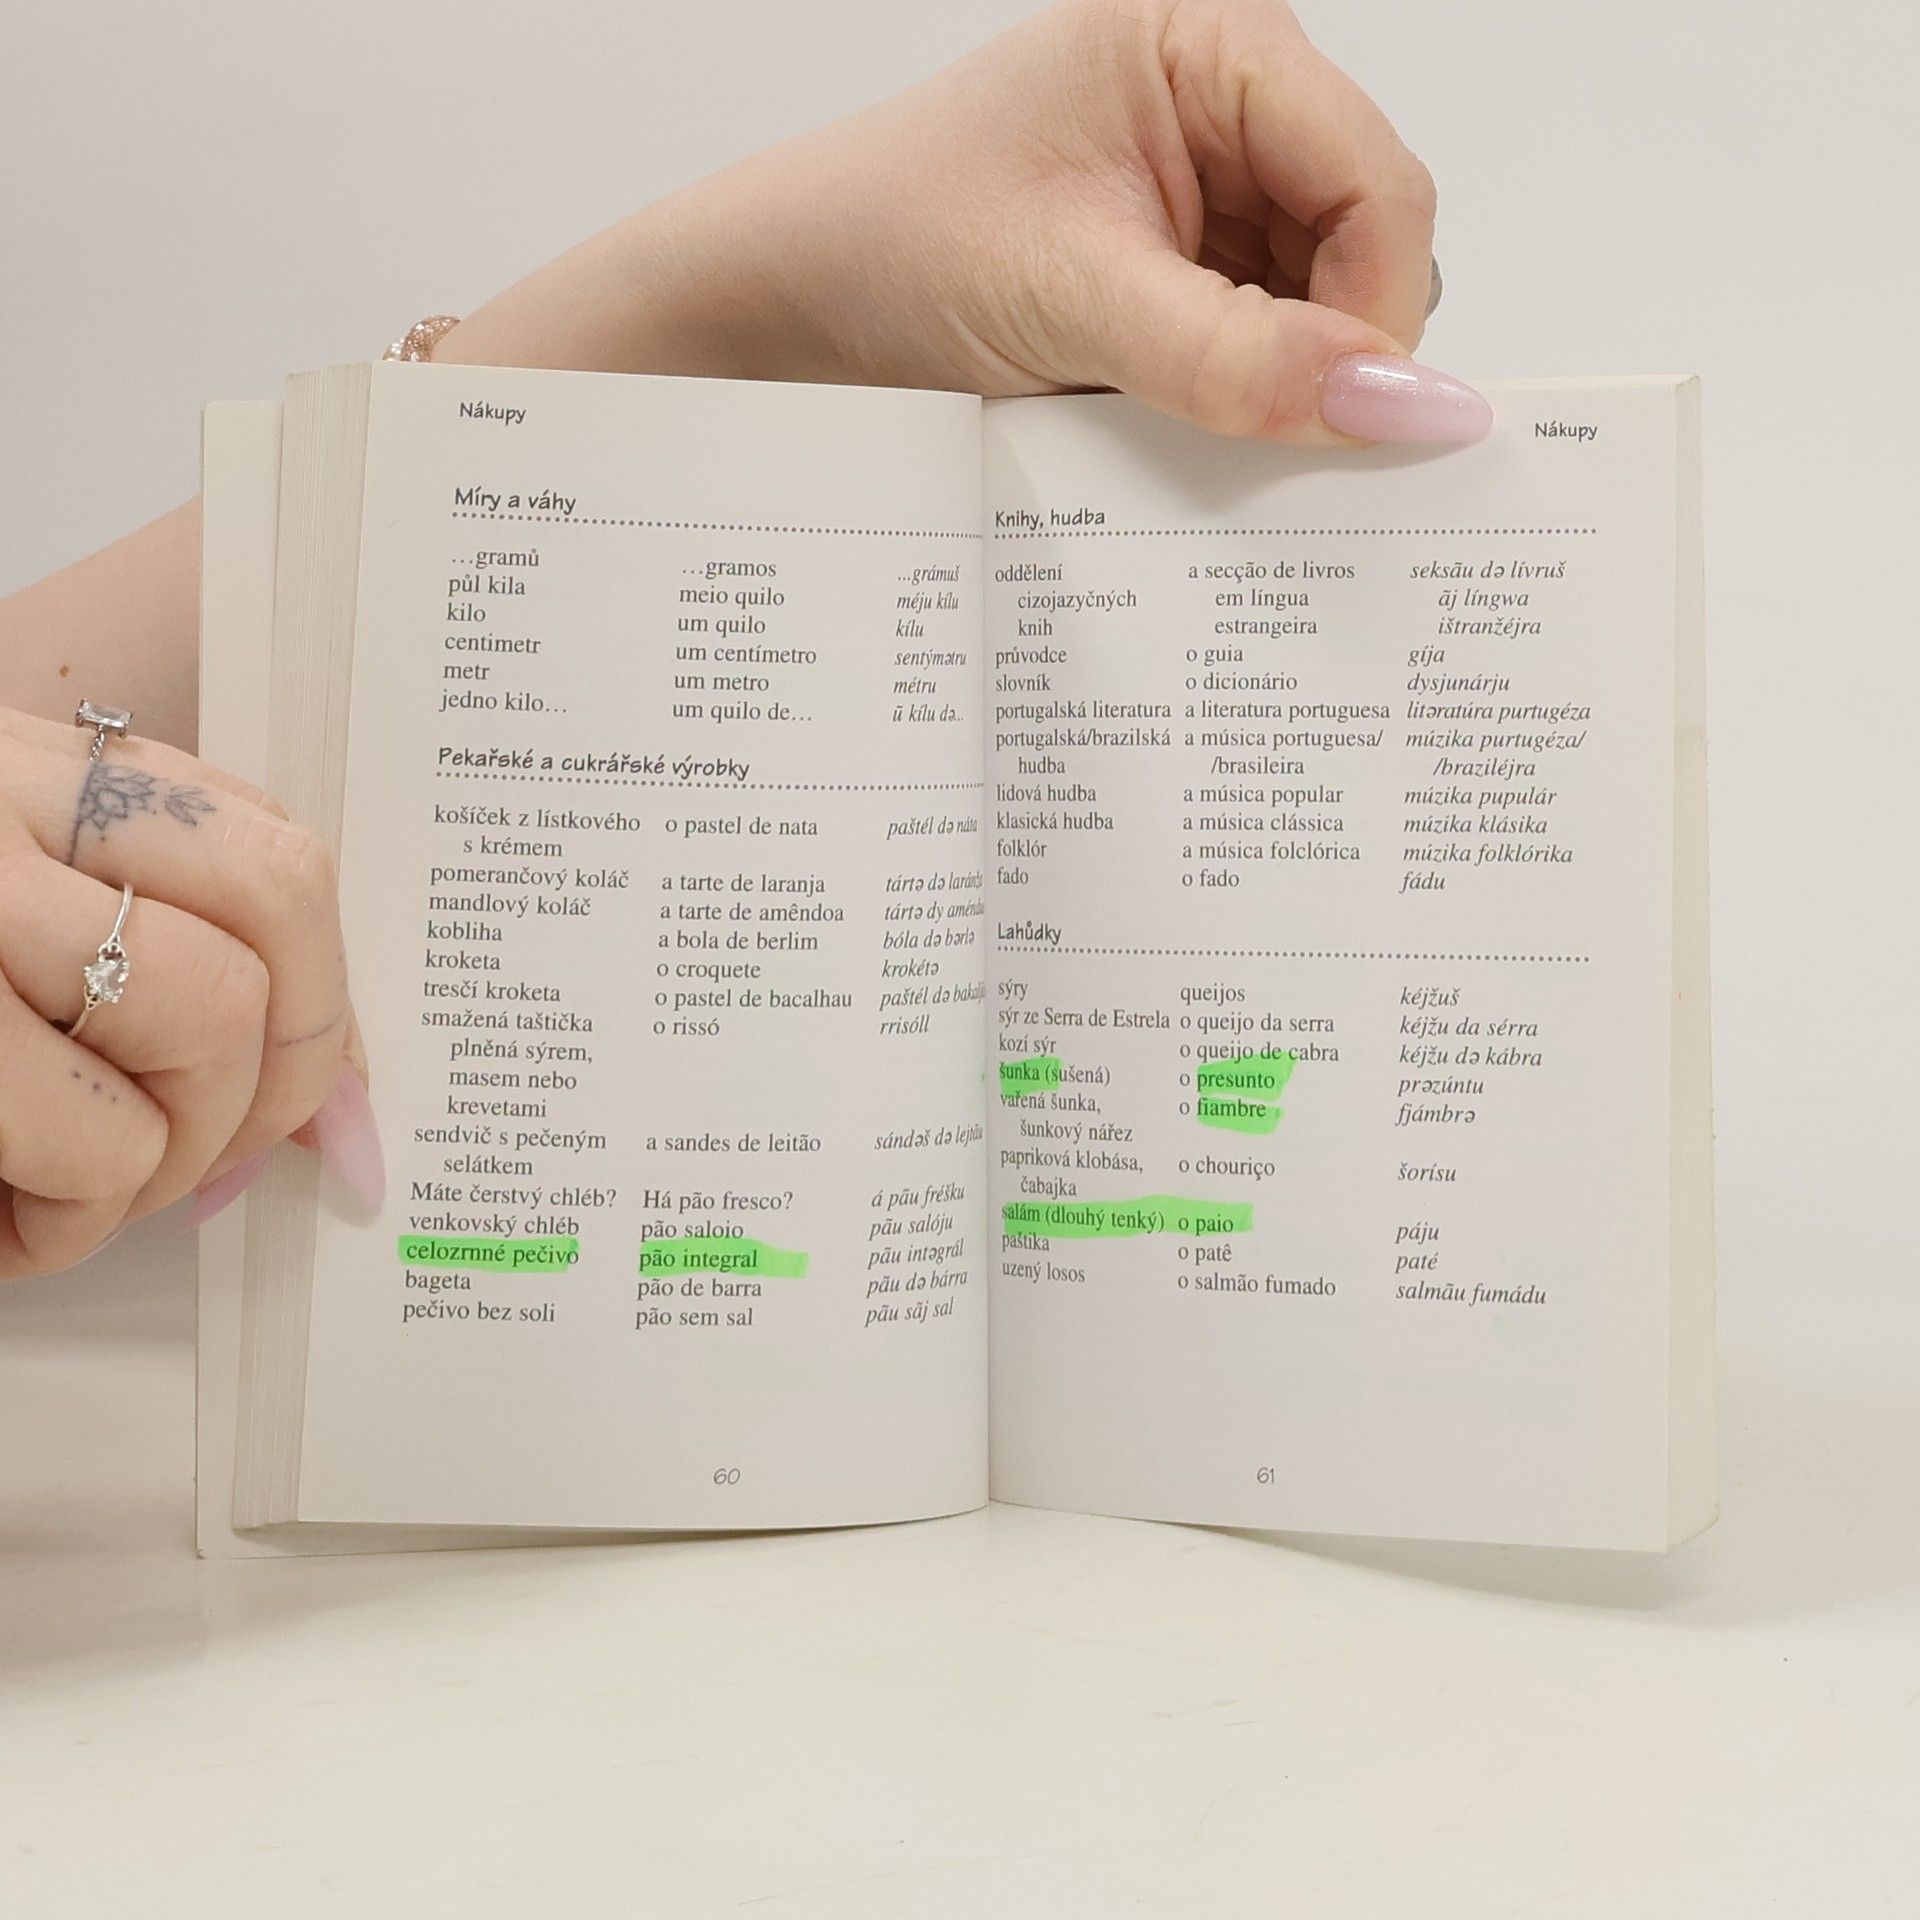 Nákupy
Míry a váhy
…gramů …gramos …grámuš
půl kila meio quilo méju kílu
kilo um quilo kílu
centimetr um centímetro sentýmətru
metr um metro métru
jedno kilo… um quilo de… ũ kílu də…
Pekařské a cukrářské výrobky
košíček z lístkového o pastel de nata paštél də náta
s krémem
pomerančový koláč a tarte de laranja tártə də
mandlový koláč a tarte de amêndoa tártə dy
kobliha a bola de berlim bóla də bərlə
kroketa o croquete krokétə
tresčí kroketa o pastel de bacalhau paštél də
smažená taštička o rissó rrisóll
plněná sýrem,
masem nebo
krevetami
sendvič s pečeným a sandes de leitão sándəš də lejtãu
selátkem
Máte čerstvý chléb? Há pão fresco? á pãu fréšku
venkovský chléb pão saloio pãu salóju
celozrnné pečivo pão integral pãu intəgrál
bageta pão de barra pãu də bárra
pečivo bez soli pão sem sal pãu sãj sal
60
Nákupy
Knihy, hudba
oddělení a secção de livros seksãu də lívruš
cizojazyčných em língua ãj língwa
knih estrangeira ištranžéjra
průvodce o guia gíja
slovník o dicionário dysjunárju
portugalská literatura a literatura portuguesa litəratúra purtugéza
portugalská/brazilská a música portuguesa/ múzika purtugéza/
hudba /brasileira /braziléjra
lidová hudba a música popular múzika pupulár
klasická hudba a música clássica múzika klásika
folklór a música folclórica múzika folklórika
fado o fado fádu
Lahůdky
sýry queijos kéjžuš
sýr ze Serra de Estrela o queijo da serra kéjžu da sérra
kozí sýr o queijo de cabra kéjžu də kábra
šunka (sušená) o presunto prəzúntu
vařená šunka, o fiambre fjámbrə
šunkový nářez
papriková klobása, o chouriço šorísu
čabajka
salám (dlouhý tenký) o paio páju
paštika o patê paté
uzený losos o salmão fumado salmãu fumádu
61